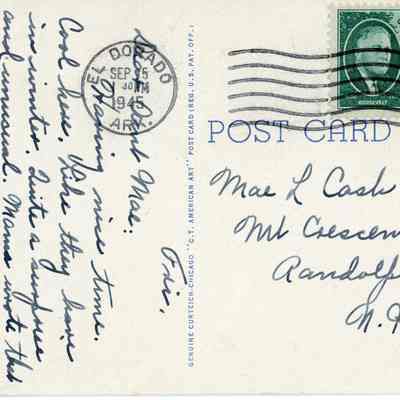 Fri,
Dear Aunt Mae:
Having nice time.
Cool here. Like they have
in winter. Quite a surprise
and unusual. Mama wrote that
EL DORADO
SEP 15
PM
1945
ARK.
GENUINE CURTEICH-CHICAGO "C.T. AMERICAN ART" POST CARD (REG. U.S. PAT. OFF.)
ROOSEVELT
POST CARD
Mae L Cash
Mt Crescen
Randolf
N.